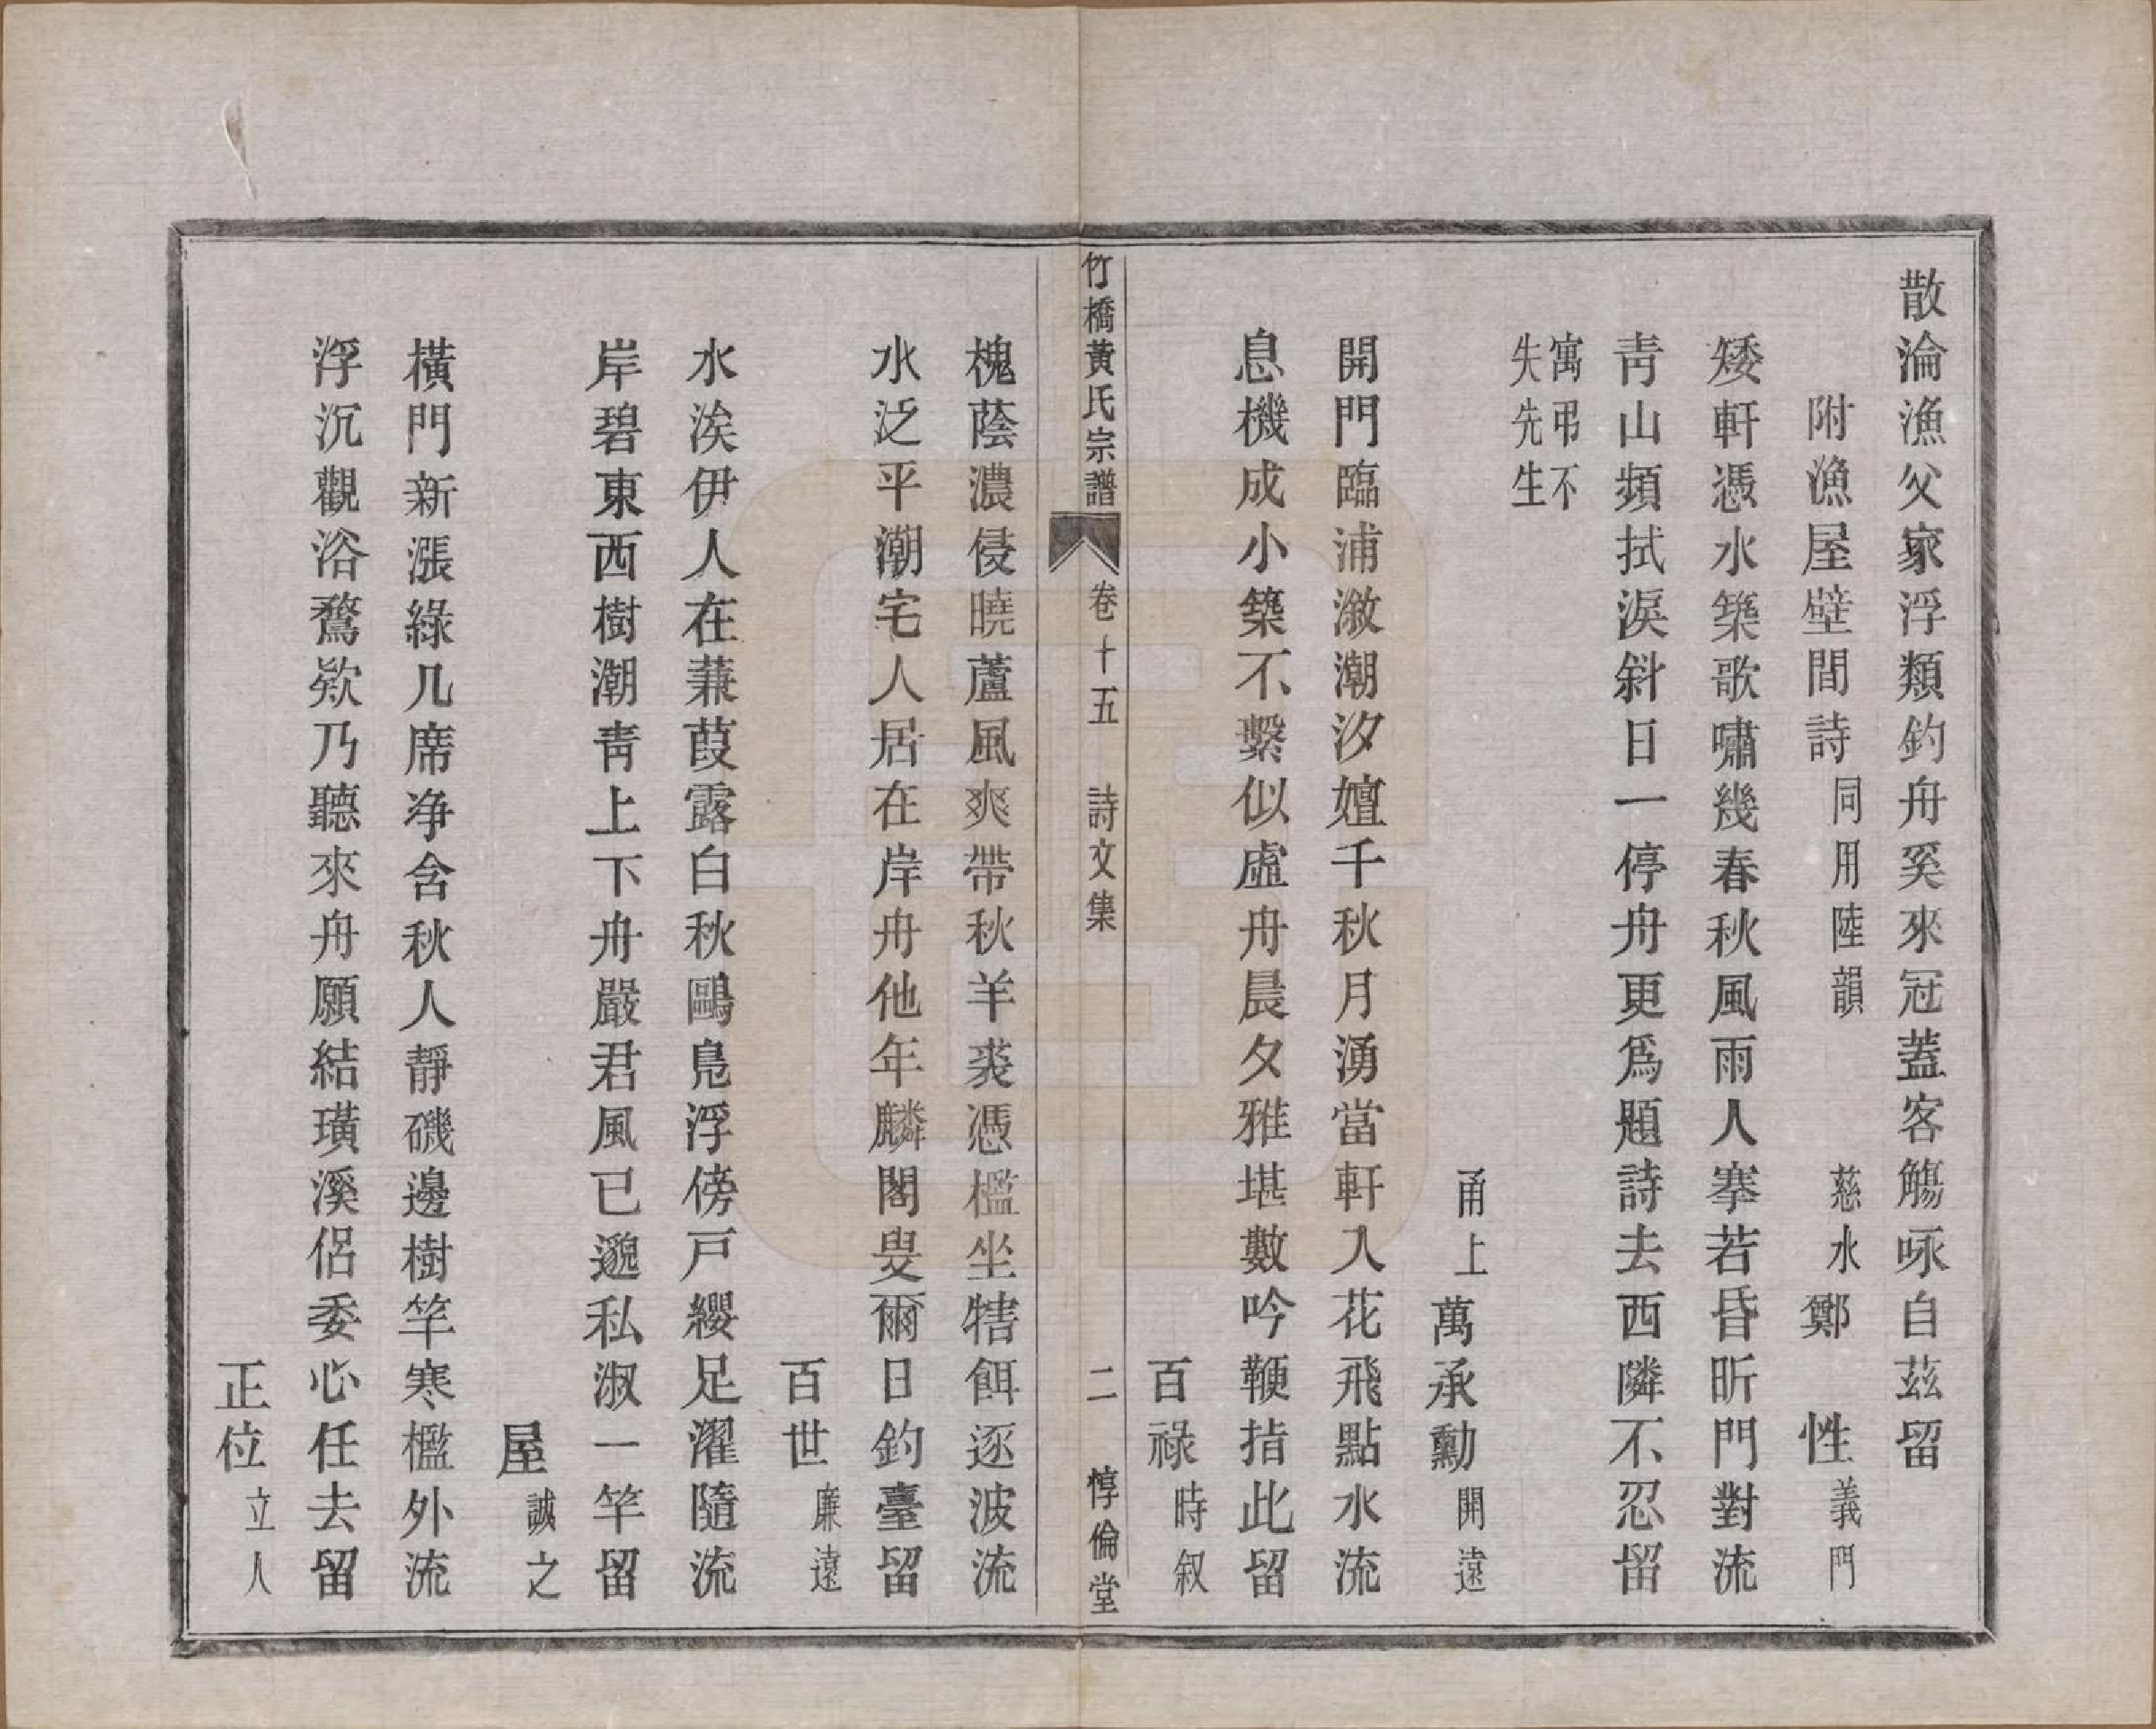 散淪漁父家浮類釣舟奚來冠蓋客觴咏自茲留
附漁屋壁間詩同用陸韻 慈水鄭 性義門
矮軒憑水築歌嘯幾春秋風雨人搴若昏昕門對流
靑山頻拭淚斜日一停舟更爲題詩去西隣不忍留
寓弔不
失先生
甬上萬承勳開遠
開門臨浦漵潮汐嬗千秋月湧當軒入花飛點水流
息機成小築不繫似虛舟晨夕雅堪數吟鞭指此留
百祿時叙
竹橋黃氏宗譜 卷十五 詩文集 二 惇倫堂
槐蔭濃侵曉蘆風爽帶秋羊裘憑檻坐犗餌逐波流
水泛平潮宅人居在岸舟他年麟閣叟爾日釣臺留
百世廉遠
水涘伊人在蒹葭露白秋鷗鳧浮傍戸纓足濯隨流
岸碧東西樹潮靑上下舟嚴君風已邈私淑一竿留
屋誠之
橫門新漲綠几席净含秋人靜磯邊樹竿寒檻外流
浮沉觀浴鶩欸乃聽來舟願結璜溪侶委心任去留
正位立人